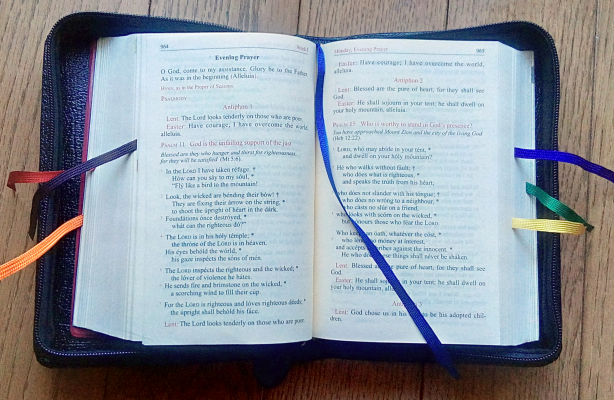 964
Evening Prayer
O God, come to my assistance. Glory be to the Father
As it was in the beginning (Alleluia).
Hymn, as in the Proper of Seasons.
PSALMODY
Antiphon 1
Lent: The Lord looks tenderly on those who are poor.
Easter: Have courage; I have overcome the world,
alleluia.
PSALM 11 God is the unfailing support of the just
Blessed are they who hunger and thirst for righteousness,
for they will be satisfied (Mt 5:6).
In the LORD I have taken refuge. *
How can you say to my soul, *
"Fly like a bird to the mountain!
Look, the wicked are bending their bow! †
They are fixing their arrow on the string, *
to shoot the upright of heart in the dark.
Foundations once destroyed, *
what can the righteous do?"
The LORD is in his holy temple; *
the throne of the LORD is in heaven.
His eyes behold the world, *
his gaze inspects the sons of men.
The LORD inspects the righteous and the wicked; *
the lover of violence he hates.
He sends fire and brimstone on the wicked, *
a scorching wind to fill their cup.
For the LORD is righteous and loves righteous deeds; *
the upright shall behold his face.
Lent: The Lord looks tenderly on those who are poor.
Monday, Evening Prayer
965
Easter: Have courage; I have overcome the world,
alleluia.
Antiphon 2
Lent: Blessed are the pure of heart, for they shall see
God.
Easter: He shall sojourn in your tent; he shall dwell on
your holy mountain, alleluia.
PSALM 15 Who is worthy to stand in God's presence?
You have approached Mount Zion and the city of the living God
(Heb 12:22).
LORD, who may abide in your tent, *
and dwell on your holy mountain?
He who walks without fault; †
who does what is righteous, *
and speaks the truth from his heart;
does not slander with his tongue; †
who does no wrong to a neighbour, *
who casts no slur on a friend,
who looks with scorn on the wicked, *
but honours those who fear the LORD.
Who keeps an oath, whatever the cost, *
who lends no money at interest,
and accepts no bribes against the innocent. *
He who does these things shall never be shaken.
Lent: Blessed are the pure of heart, for they shall see
God.
Easter: He shall sojourn in your tent; he shall dwell on
your holy mountain, alleluia.
Lent: God chose us in his to be his adopted chil-
dren.